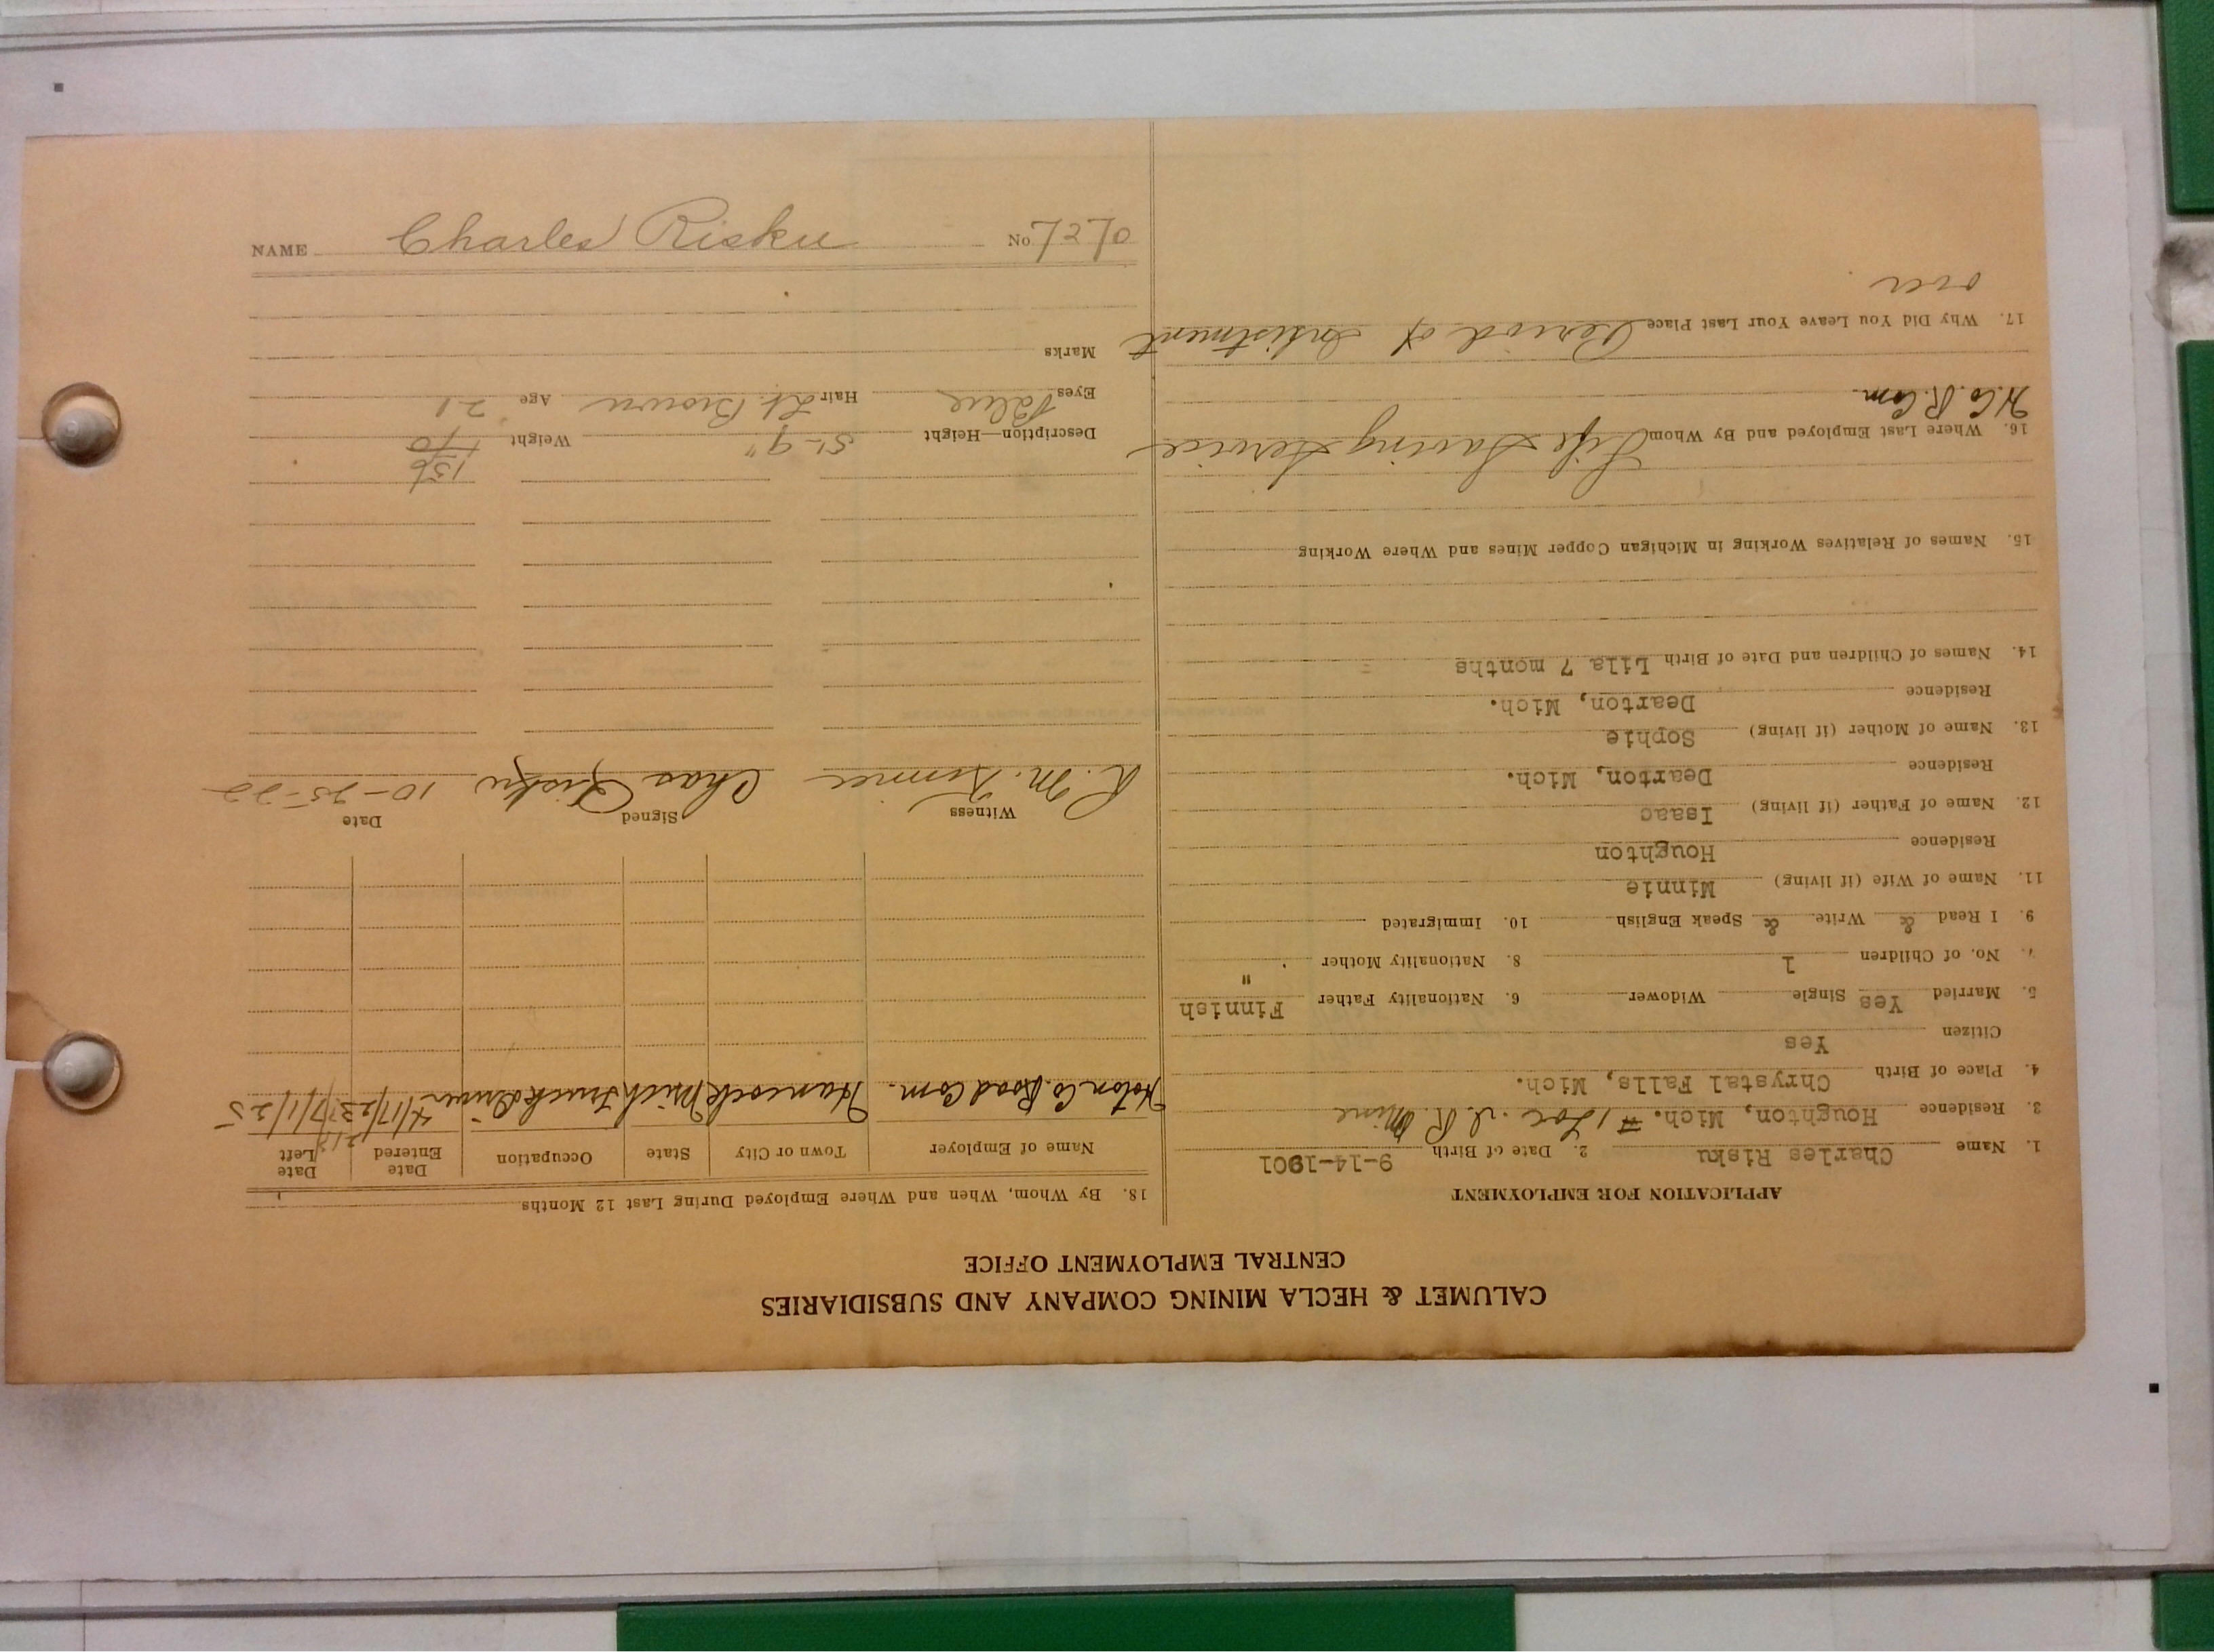 CALUMET & HECLA MINING COMPANY AND SUBSIDIARIES
CENTRAL EMPLOYMENT OFFICE
APPLICATION FOR EMPLOYMENT
1. Name Charles Risku 2. Date of Birth 9-14-1901
3. Residence Houghton, Mich. #1 Loc. I. R. Mine
4. Place of Birth Chrystal Falls, Mich.
Citizen Yes
5. Married Yes Single Widower 6. Nationality Father Finnish
7. No. of Children 1 8. Nationality Mother "
9. I Read & Write & Speak English 10. Immigrated
11. Name of Wife (if living) Minnie
Residence Houghton
12. Name of Father (if living) Isaac
Residence Dearton, Mich.
13. Name of Mother (if living) Sophie
Residence Dearton, Mich.
14. Names of Children and Date of Birth Lila 7 months
15. Names of Relatives Working in Michigan Copper Mines and Where Working
16. Where Last Employed and By Whom Life Saving Service
H. Co. R. Com.
17. Why Did You Leave Your Last Place Period of Inlistment
over
18. By Whom, When and Where Employed During Last 12 Months
Name of Employer Town or City State Occupation Date Entered Date Left
Hoton Co. Road Com. Hancock Mich Truck driver 4/17/23 7/1/25
Witness Signed Date
R. M. Chas Risku 10-25-22
156
Description—Height 5'-9" Weight 170
Eyes Blue Hair Lt. Brown Age 21
Marks
NAME Charles Risku No 7270